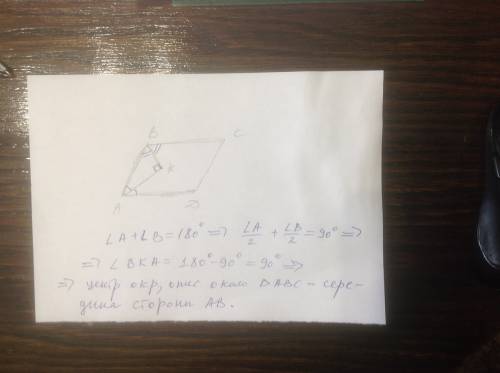 B C
K
A D
∠A+∠B=180° ⇒ ∠A/2 + ∠B/2 = 90° ⇒
⇒ ∠BKA = 180°-90° = 90° ⇒
⇒ центр окр, опис около DABC - сере-
дина стороны AB.